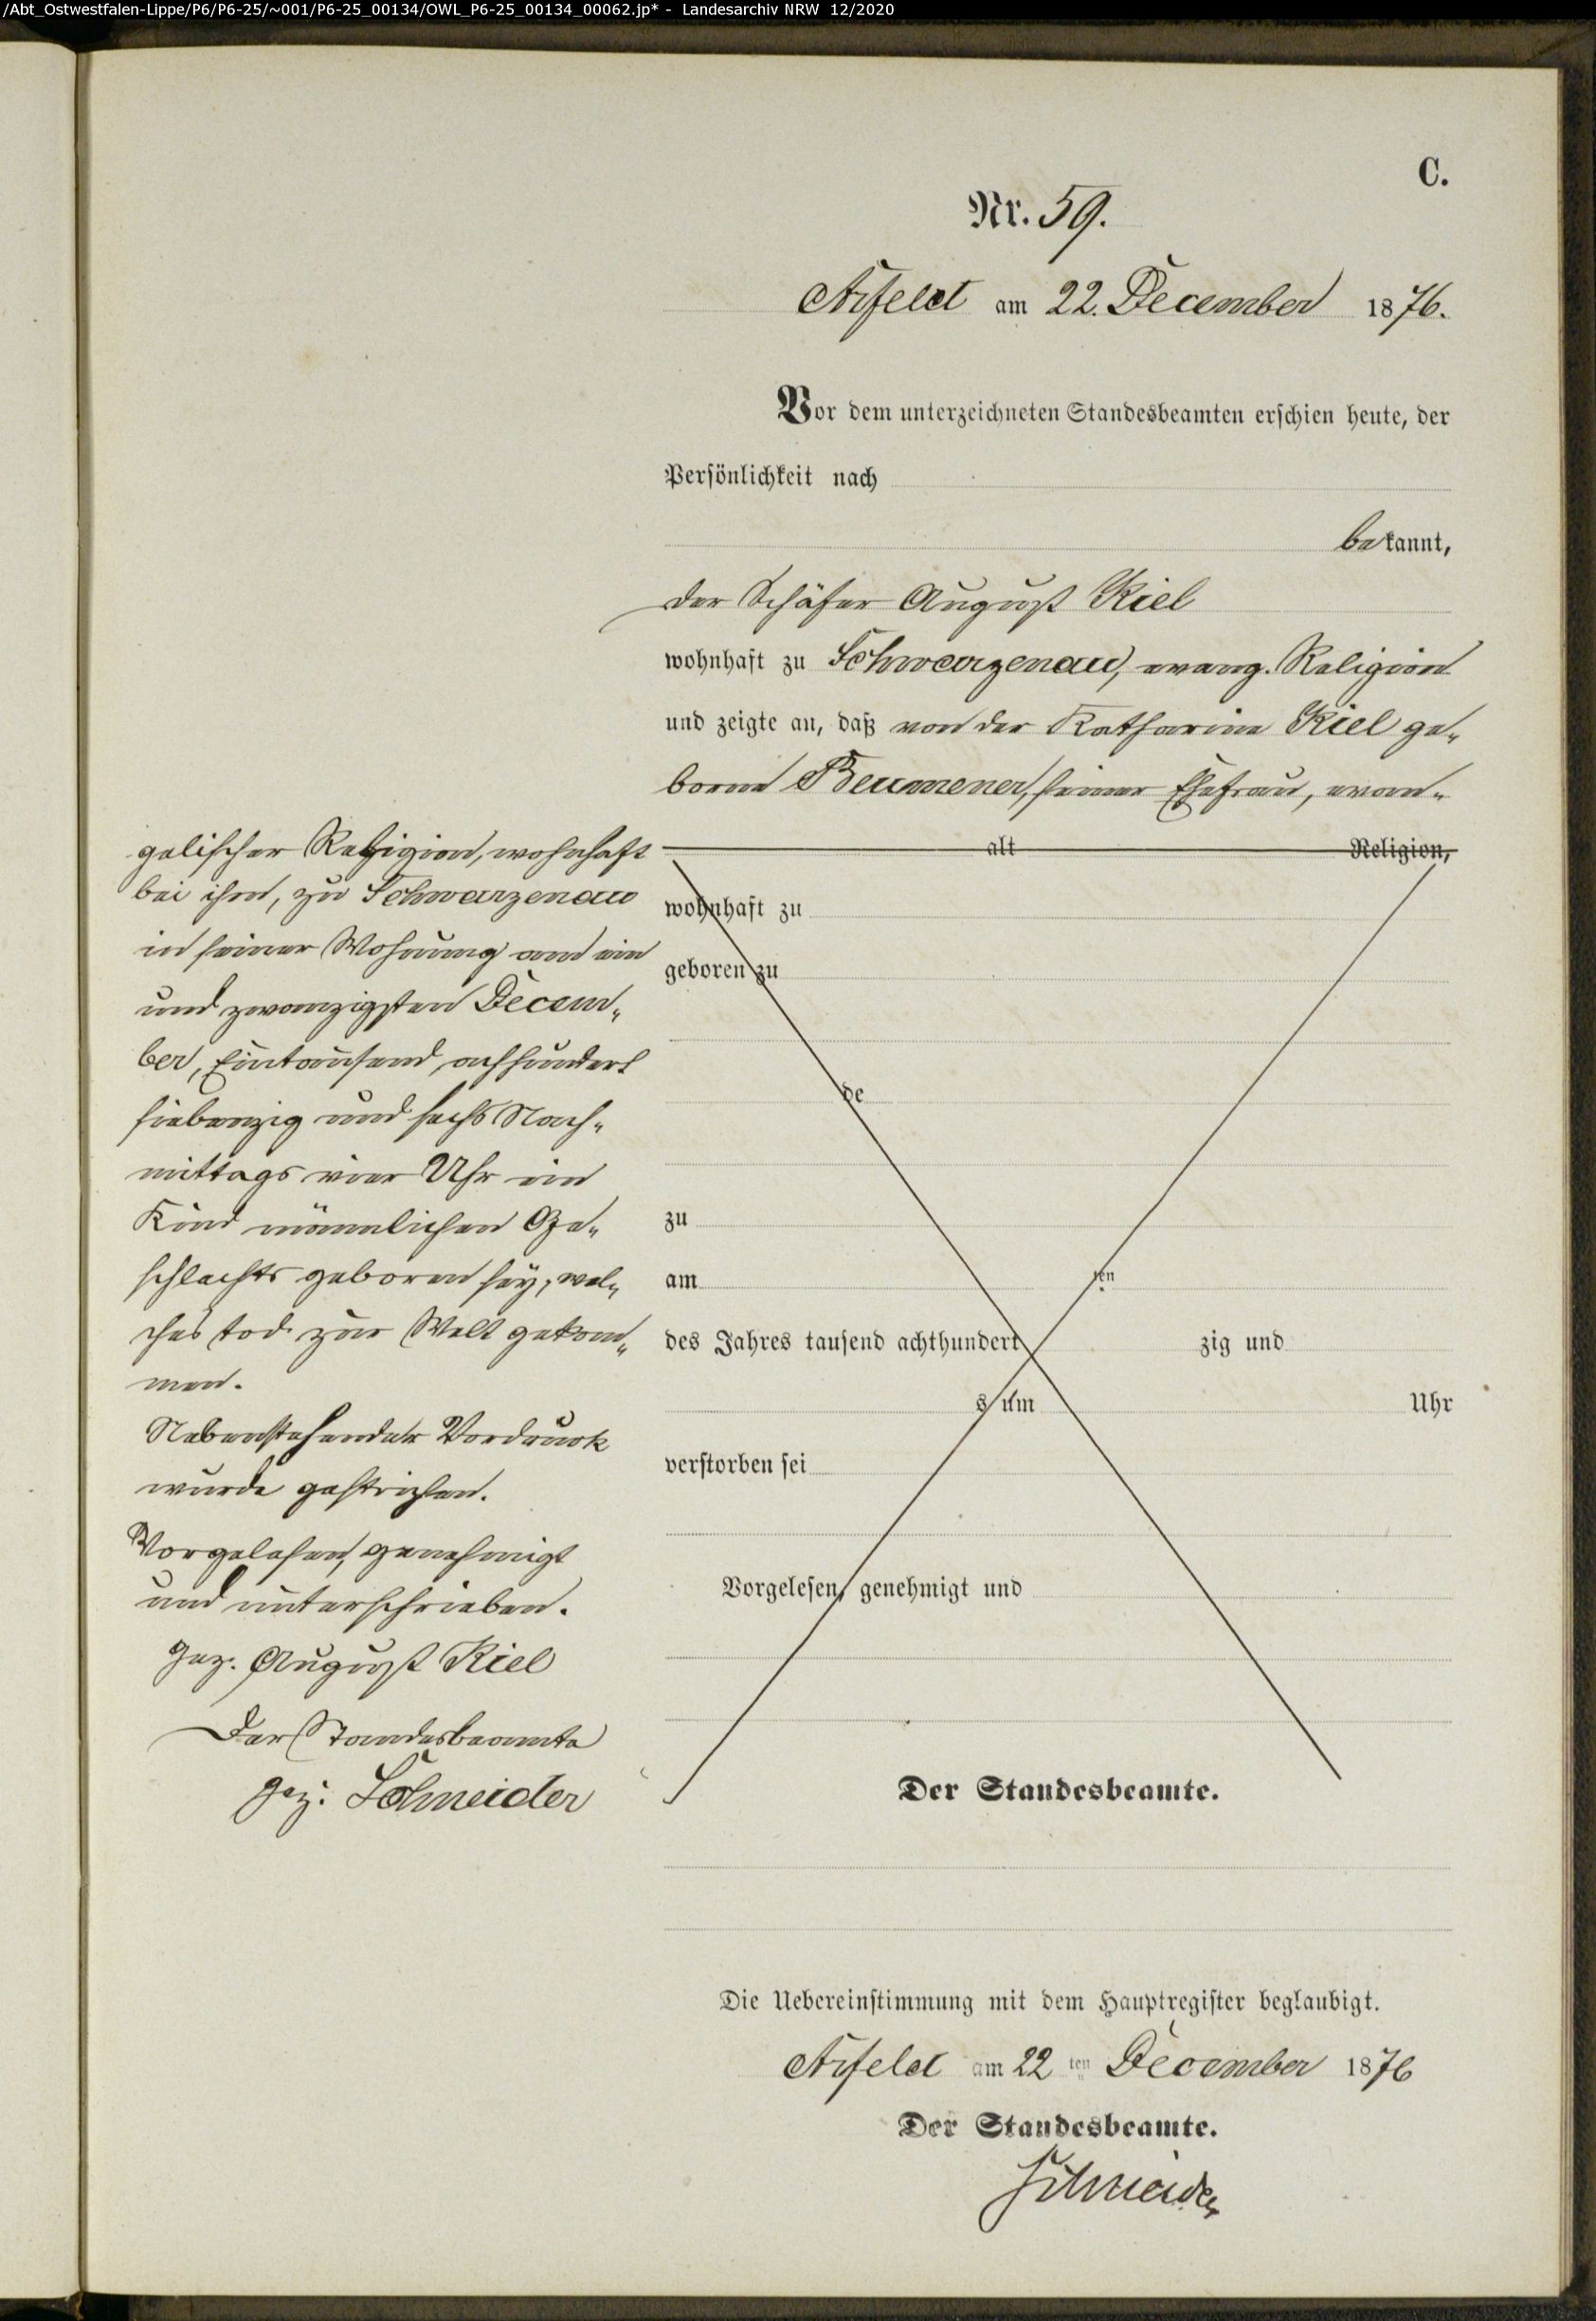 /Abt_Ostwestfalen-Lippe/P6/P6-25/~001/P6-25_00134/OWL_P6-25_00134_00062.jp* - Landesarchiv NRW 12/2020
C.
Nr. 59.
Arfeld am 22. December 1876.
Vor dem unterzeichneten Standesbeamten erschien heute, der
Persönlichkeit nach
bekannt,
der Schäfer August Kiel
wohnhaft zu Schwarzenau, evang. Religion
und zeigte an, daß von der Katharine Kiel ge„
borne seiner Ehefrau, evan„
alt Religion,
wohnhaft zu
geboren zu
de
zu
am ten
des Jahres tausend achthundert zig und
s um Uhr
verstorben sei
Vorgelesen, genehmigt und
gelischer Religion, wohnhaft
bei ihm, zu Schwarzenau
in seiner Wohnung am ein
und zwanzigsten Decem„
ber, Eintausend achhundert
siebenzig und sechs Nach„
mittags vier Uhr ein
Kind männlichen Ge„
schlechts geboren sey, wel„
ches tod zur Welt gekom„
men.
Nebenstehender Vordruck
wurde gestrichen.
Vorgelesen, genehmigt
und unterschrieben.
gez. August Kiel
Der Standesbeamte
gez. Schneider
Der Standesbeamte.
Die Uebereinstimmung mit dem Hauptregister beglaubigt.
Arfeld am 22 ten December 1876
Der Standesbeamte.
Schneider